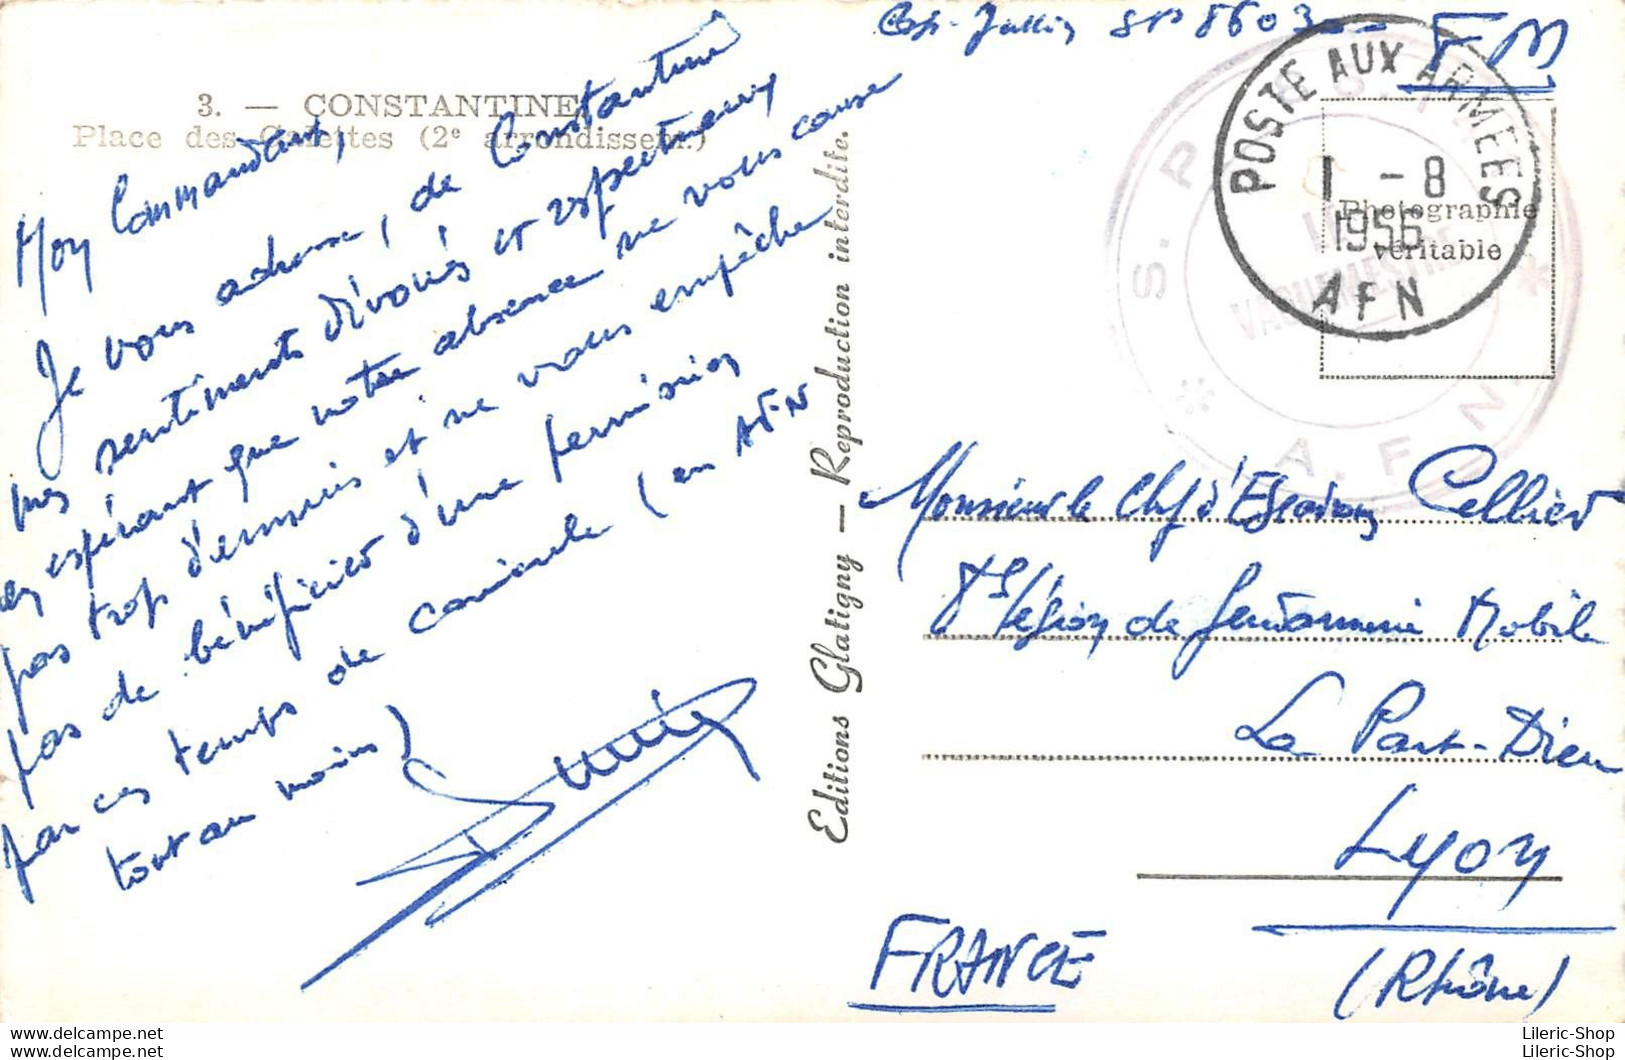 3. — CONSTANTINE
Place des Galettes (2e arrondissem.)
Mon Commandant,
Je vous adresse, de Constantine
mes sentiments dévoués et respectueux
en espérant que notre absence ne vous cause
pas trop d'ennuis et ne vous empêche
pas de bénéficier d'une permission
par ces temps de canicule (en AFN
tout au moins)
Editions Glatigny — Reproduction interdite.
SP 86032
FM
POSTE AUX ARMEES
1 - 8
1956
AFN
S. P.
VAGUEMESTRE
A. F. N.
Photographie
véritable
Monsieur le Chef d'Escadrons Cellier
Légion de Gendarmerie Mobile
La Part-Dieu
Lyon
(Rhône)
FRANCE
Lileric-Shop
Lileric-Shop
delcampe.net
delcampe.net